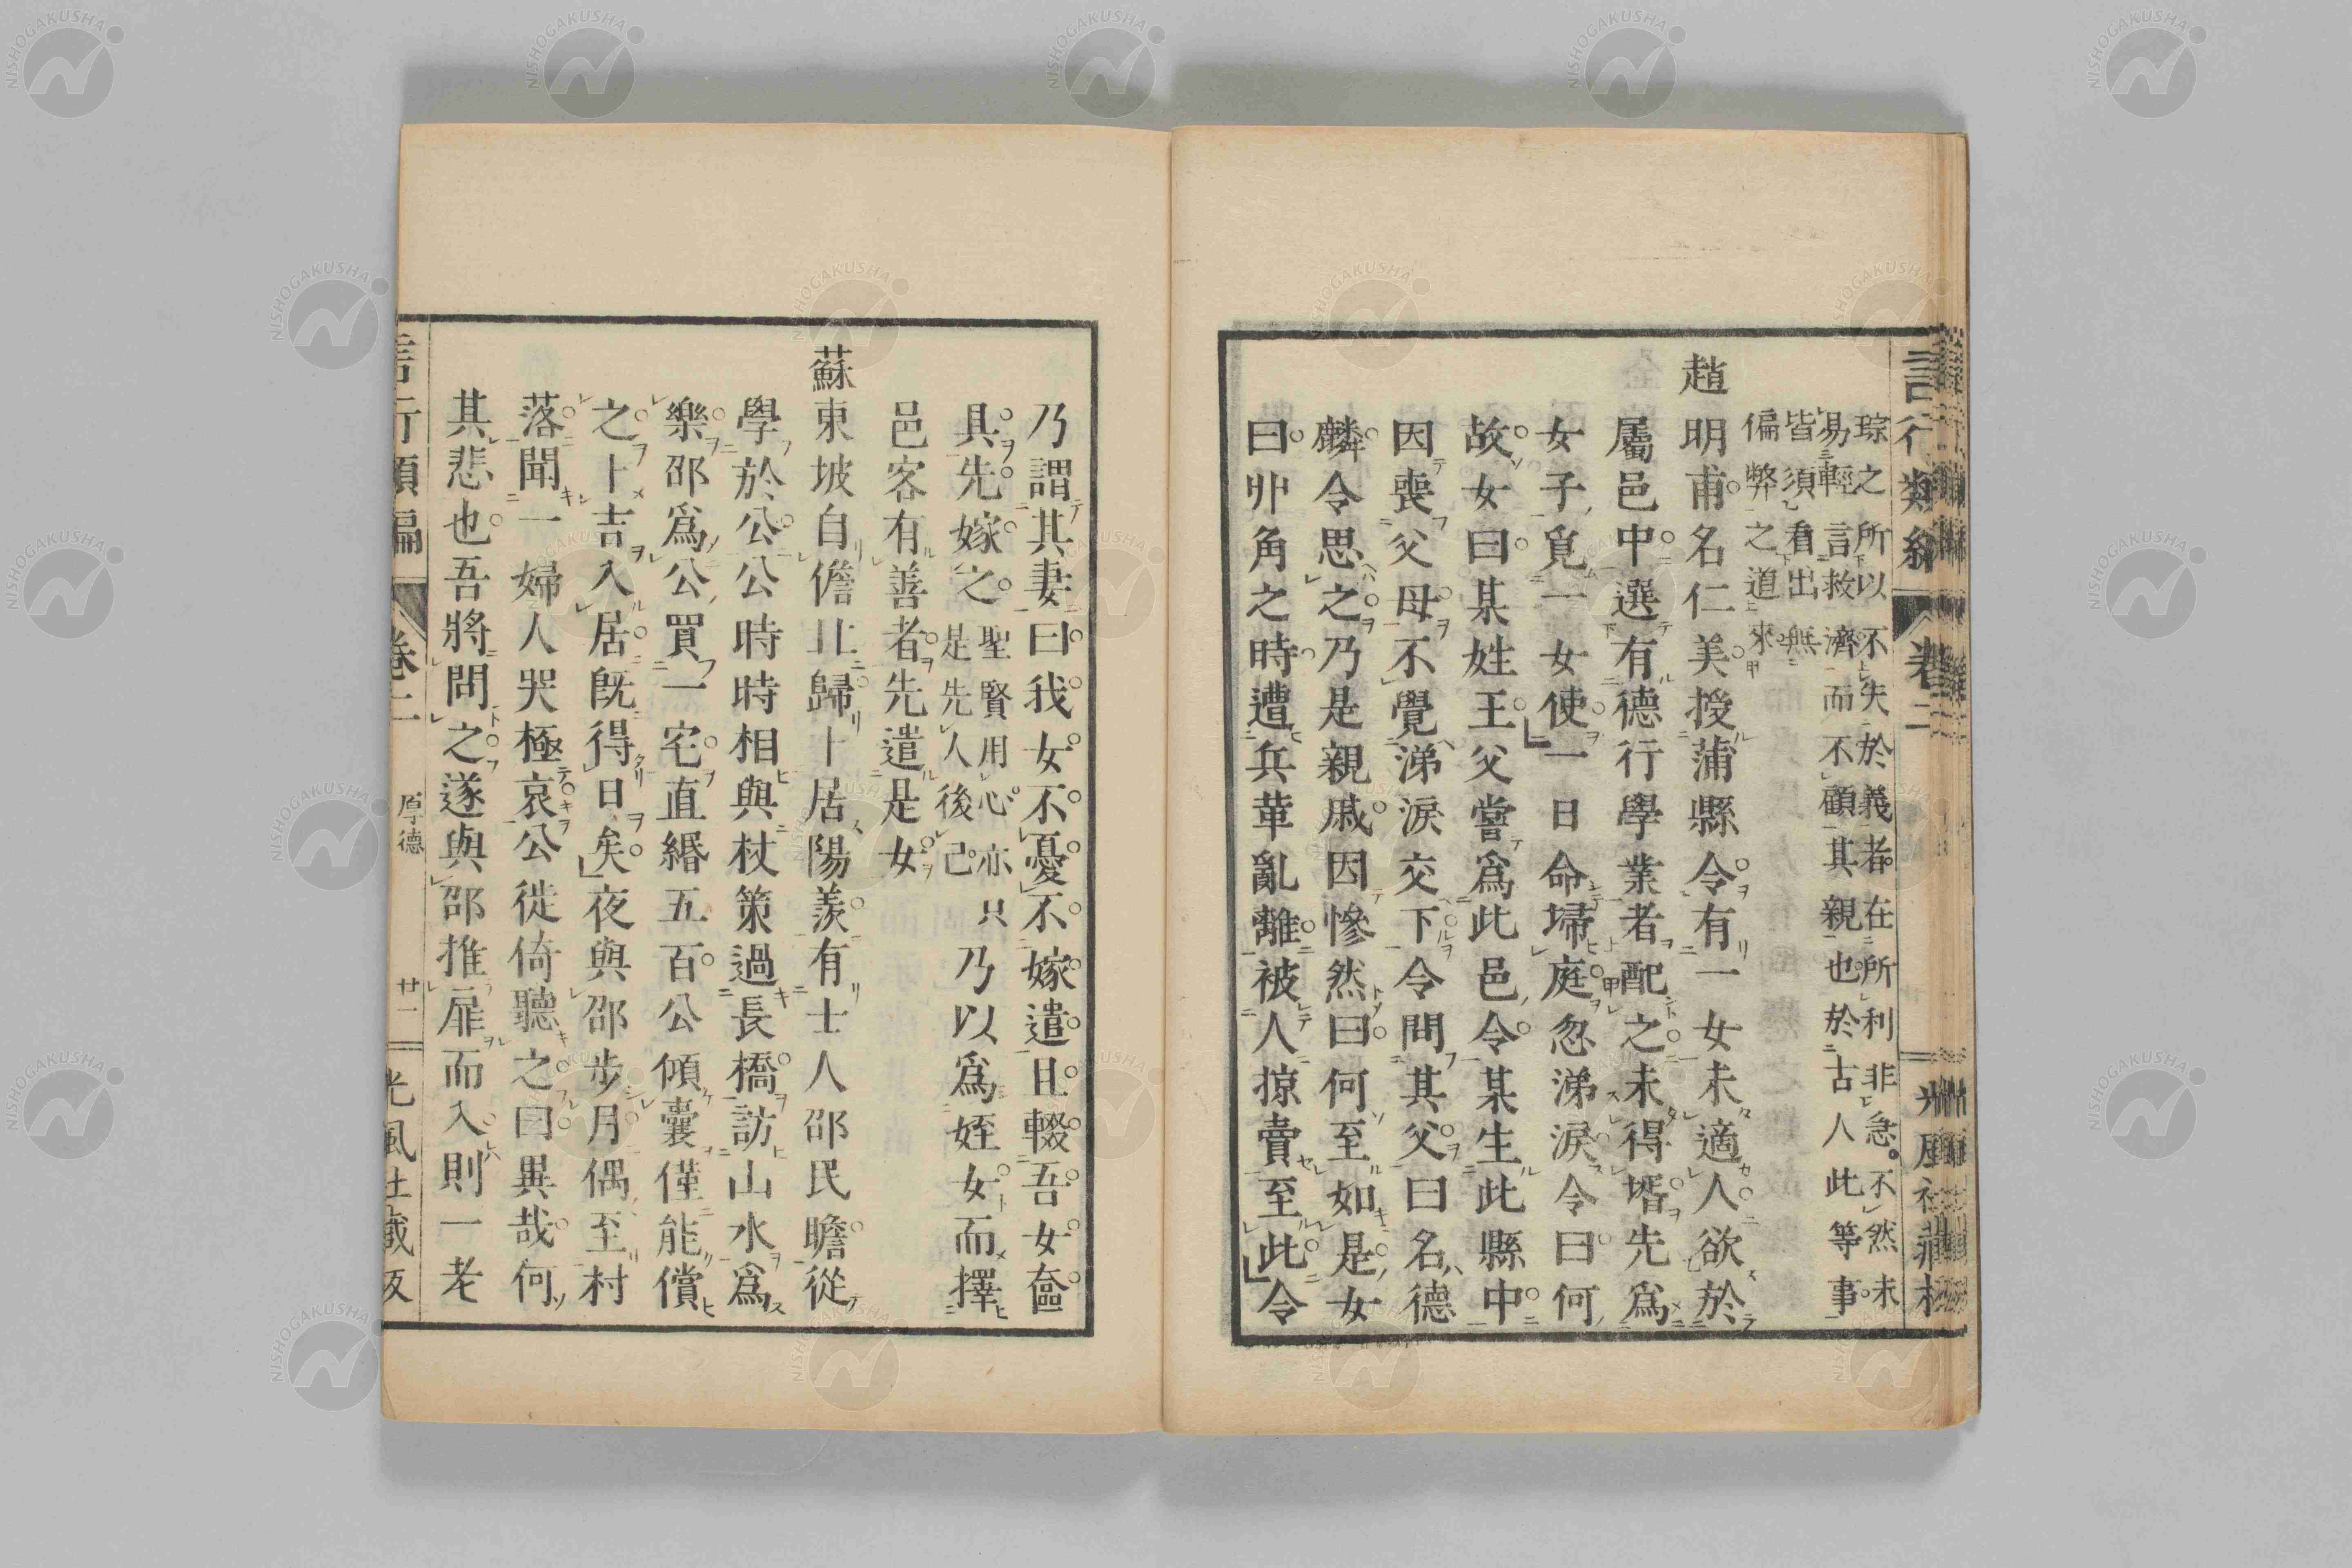 言行類編 卷二 光風社藏板
琮之所以不失於義者在所利非急不然未
易輕言救濟而不顧其親也於古人此等事
皆須看出無
偏弊之道來
趙明甫名仁美授蒲縣令有一女未適人欲於
屬邑中選有德行學業者配之未得壻先爲
女子覓一女使一日命埽庭忽涕淚令曰何
故女曰某姓王父嘗爲此邑令某生此縣中
因喪父母不覺涕淚交下令問其父曰名德
麟令思之乃是親戚因慘然曰何至如是女
曰丱角之時遭兵革亂離被人掠賣至此令
乃謂其妻曰我女不憂不嫁遣且輟吾女奩
具先嫁之
聖賢用心亦只
是先人後己
乃以爲姪女而擇
邑客有善者先遣是女
蘇東坡自儋北歸卜居陽羨有士人邵民瞻從
學於公公時時相與杖策過長橋訪山水爲
樂邵爲公買一宅直緡五百公傾囊僅能償
之卜吉入居旣得日矣夜與邵步月偶至村
落聞一婦人哭極哀公徙倚聽之曰異哉何
其悲也吾將問之遂與邵推扉而入則一老
言行類編 卷二 厚德 廿一 光風社藏板
NISHOGAKUSHA